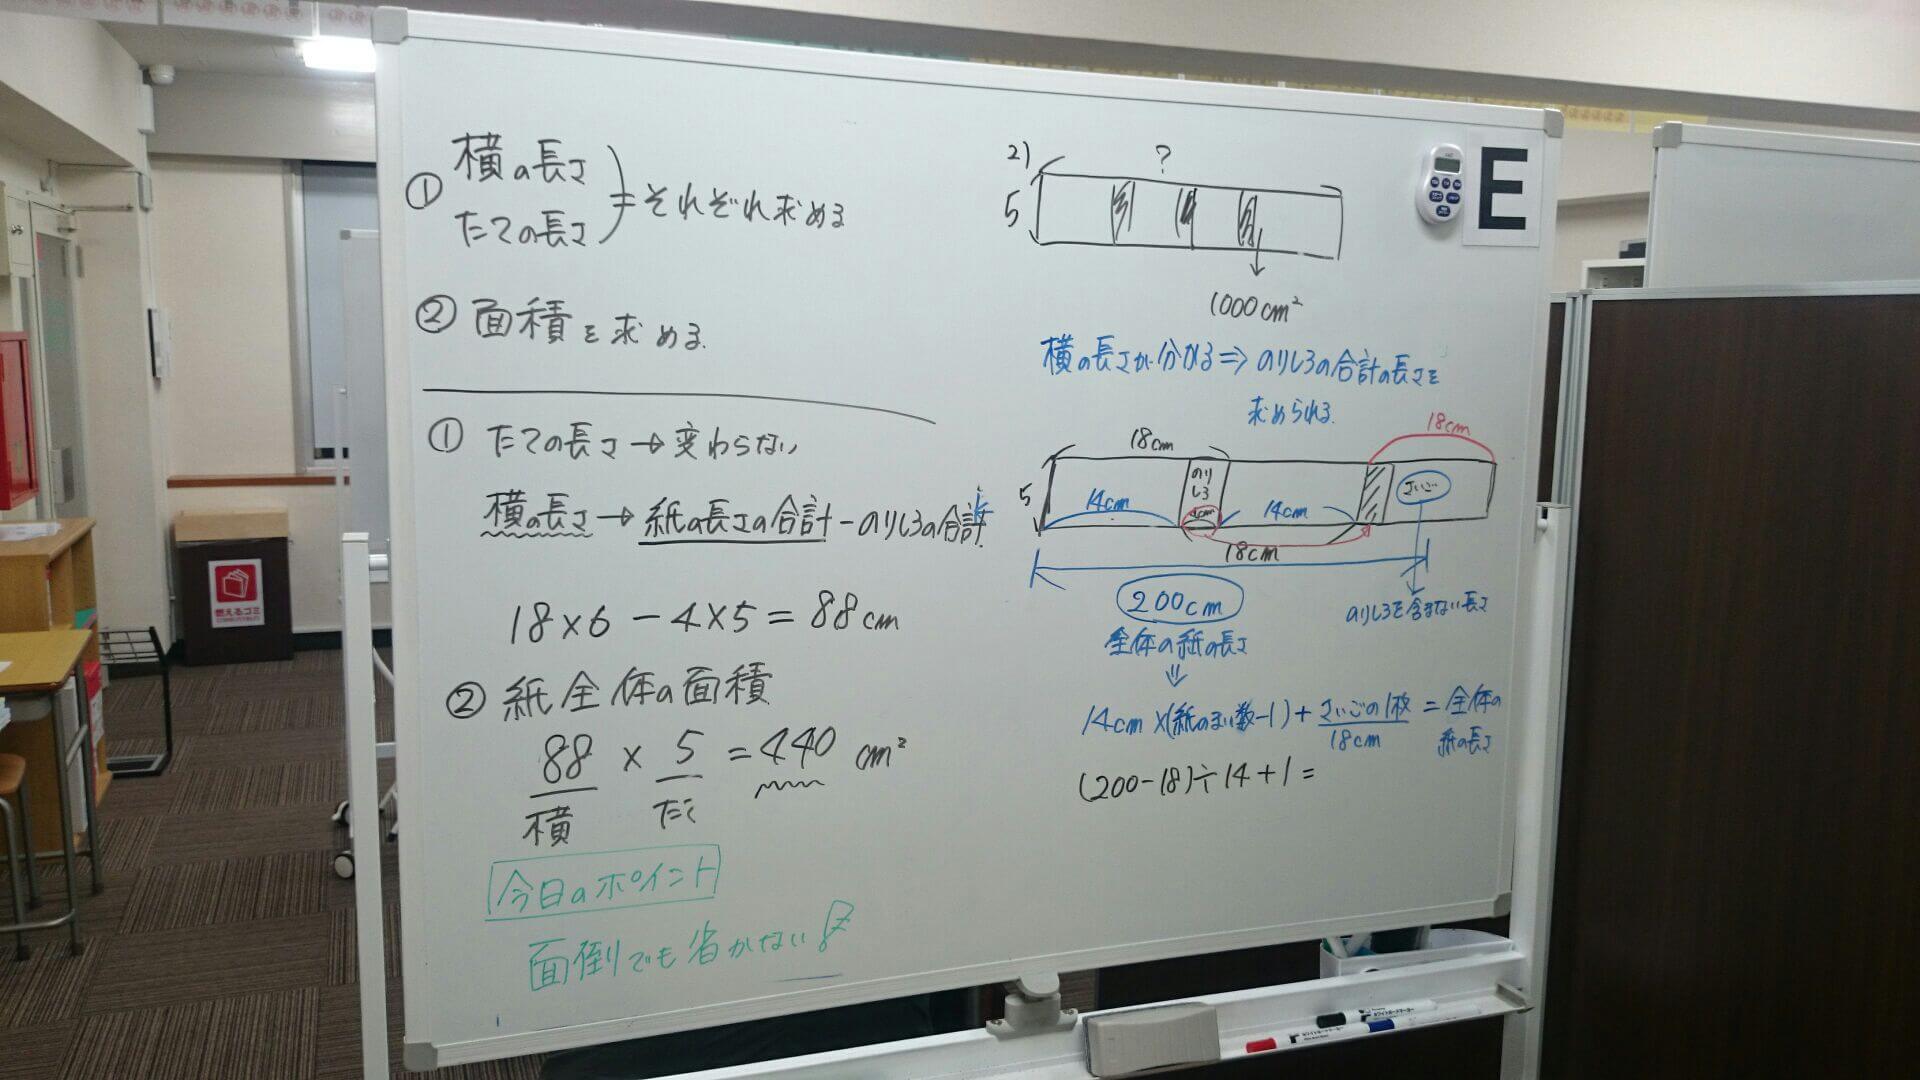 ① 横の長さ
たての長さ
= それぞれ求める
② 面積を求める.
① たての長さ → 変わらない
横の長さ → 紙の長さの合計 - のりしろの合計
18×6 - 4×5 = 88cm
② 紙全体の面積
88 × 5 = 440 cm²
横 たて
今日のポイント
面倒でも省かない!
2)
?
5
1000cm²
横の長さが分かる ⇒ のりしろの合計の長さを
求められる.
18cm
18cm
5
のり
しろ
さいご
14cm
4cm
14cm
18cm
200cm
のりしろを含まない長さ
全体の紙の長さ
⇓
14cm×(紙のまい数-1)+さいごの1枚 = 全体の
18cm
紙の長さ
(200-18)÷14+1=
E
燃えるゴミ